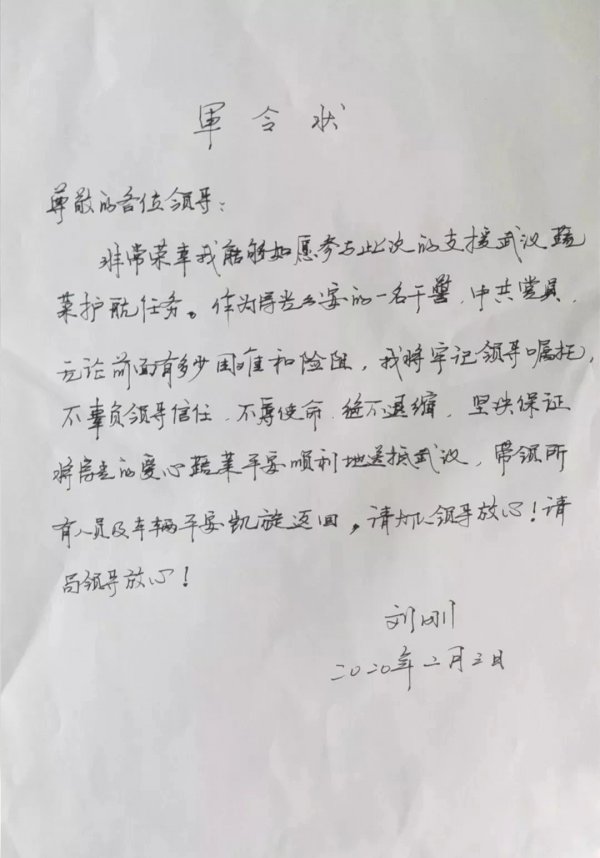 軍令状
尊敬的各位领导：
非常荣幸我能够如愿参与此次的支援武汉蔬
菜护航任务。作为寿光公安的一名干警，中共党员，
无论前面有多少困难和险阻，我将牢记领导嘱托，
不辜负领导信任，不辱使命，绝不退缩，坚决保证
将寿光的爱心蔬菜平安顺利地送抵武汉，带领所
有人员及车辆平安凯旋返回。请领导放心！请
局领导放心！
刘刚
二〇二〇年二月三日